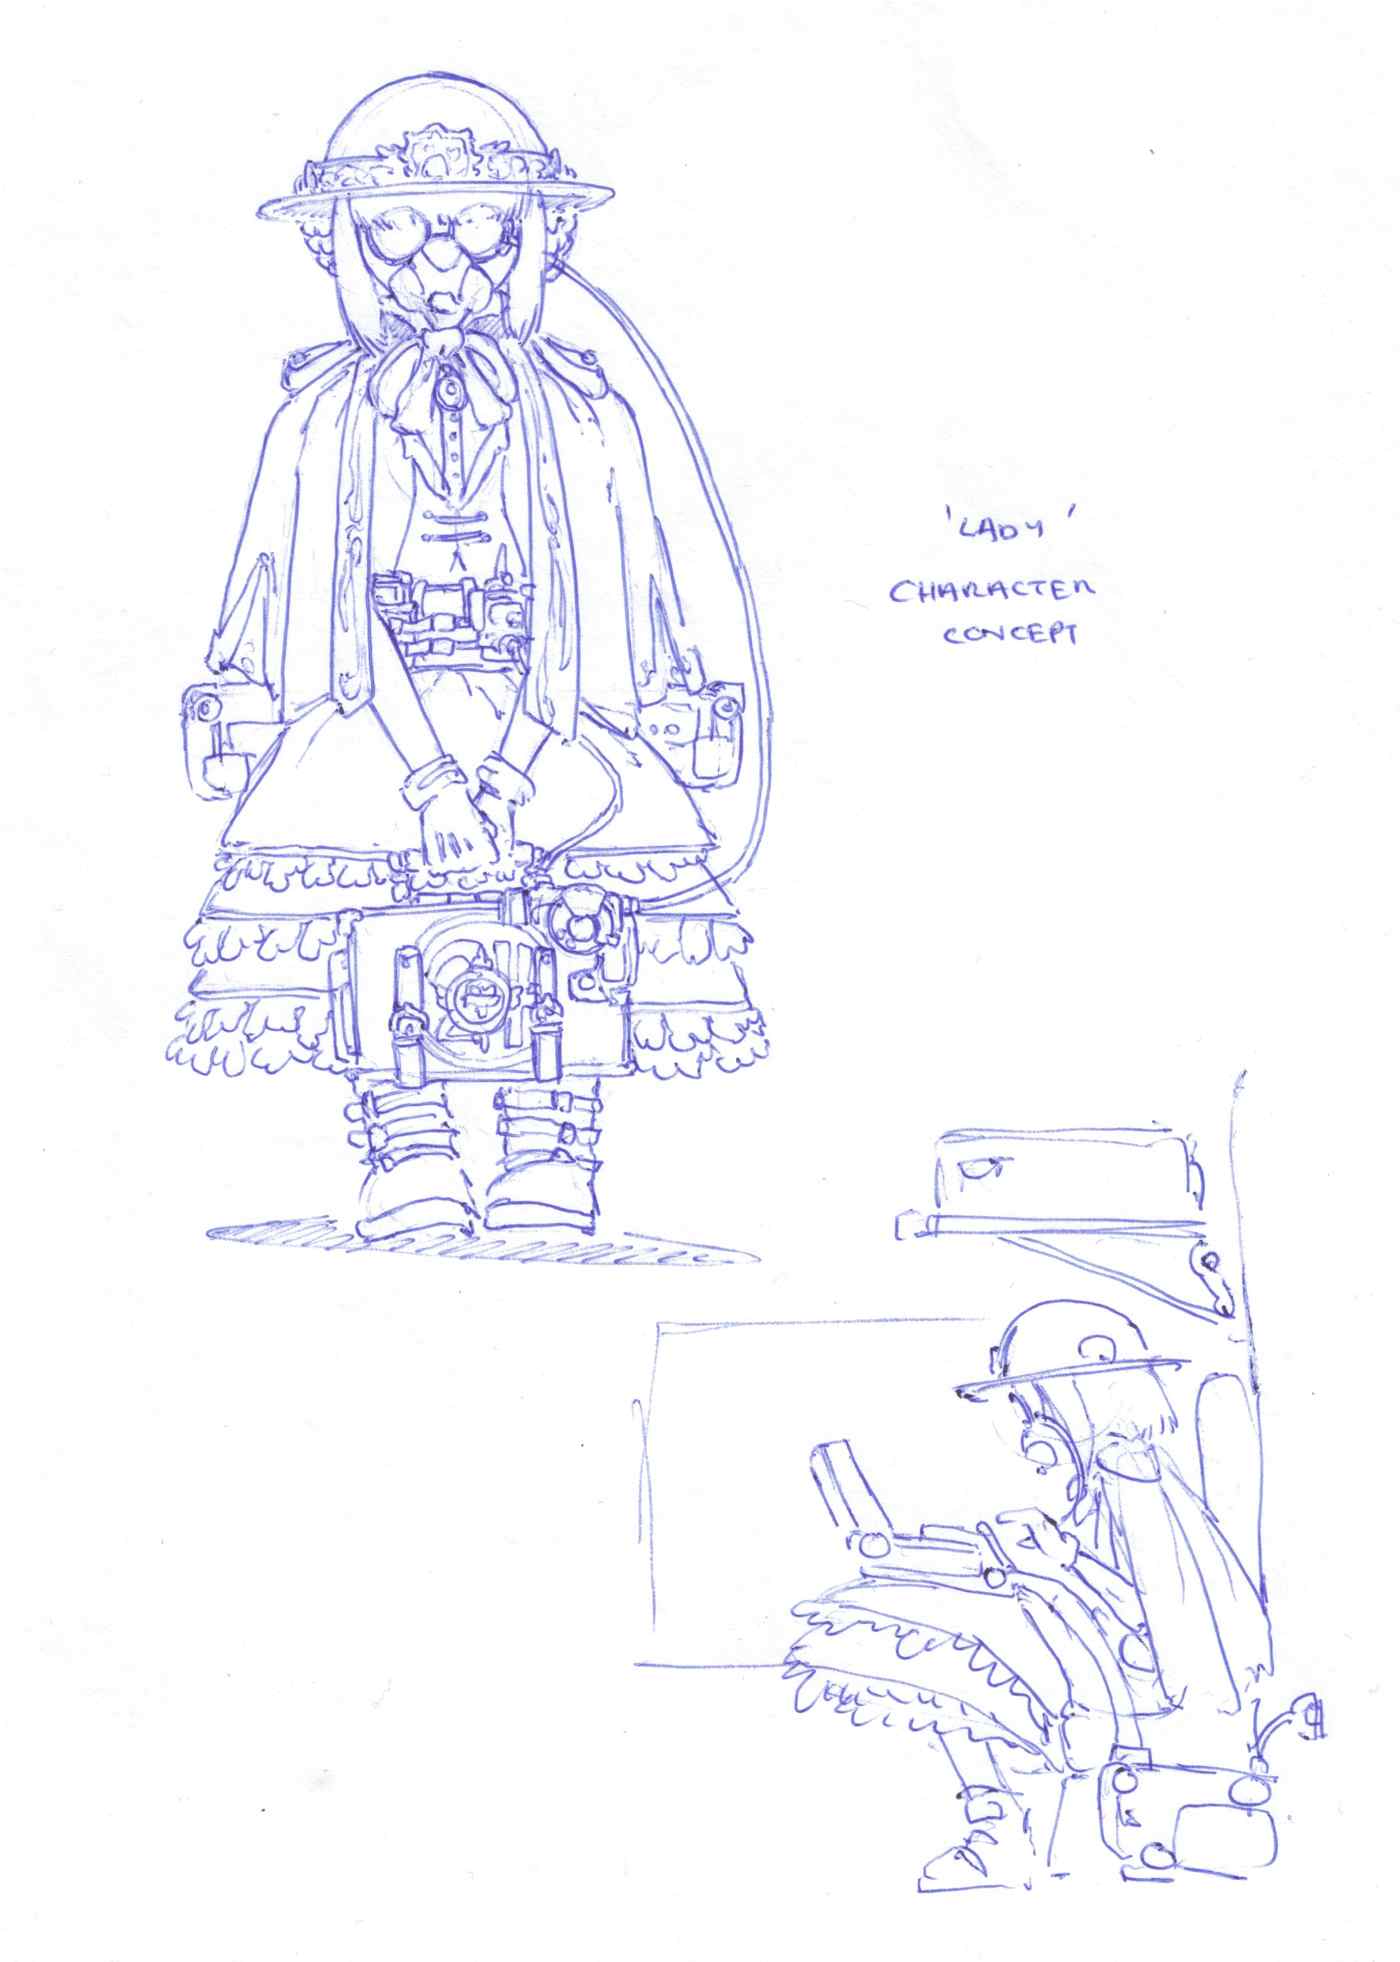 'LADY'
CHARACTER
CONCEPT